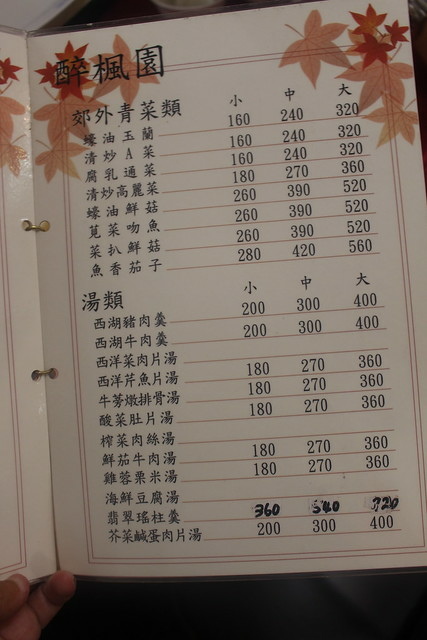 醉楓園
郊外青菜類 小 中 大
蠔油玉蘭 160 240 320
清炒A菜 160 240 320
腐乳通菜 160 240 320
清炒高麗菜 180 270 360
蠔油鮮菇 260 390 520
莧菜吻魚 260 390 520
菜扒鮮菇 260 390 520
魚香茄子 280 420 560
湯類 小 中 大
西湖豬肉羹 200 300 400
西湖牛肉羹 200 300 400
西洋菜肉片湯
西洋芹魚片湯 180 270 360
牛蒡燉排骨湯 180 270 360
酸菜肚片湯 180 270 360
榨菜肉絲湯
鮮茄牛肉湯 180 270 360
雞蓉粟米湯 180 270 360
海鮮豆腐湯
翡翠瑤柱羹 360 540 720
芥菜鹹蛋肉片湯 200 300 400